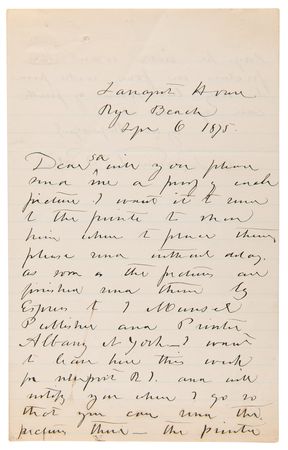 Farragut House
Rye Beach
Sep 6 1875.
Dear sa will you please
send me a proof of each
picture I want it to send
to the printer to show
him where to place them
please send without delay.
as soon as the pictures are
finished send them by
Express to J Munsel
Publisher and Printer
Albany N York — I want
to leave here this week
for Newport R I. and will
notify you where I go so
that you can send the
pictures there — the printer